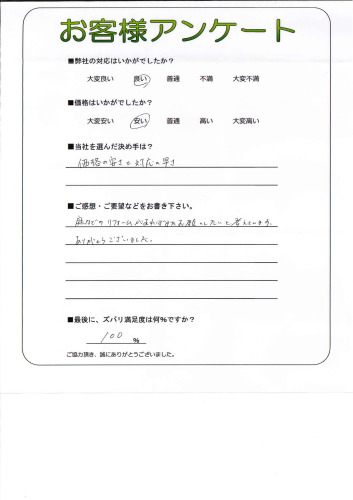 お客様アンケート
■弊社の対応はいかがでしたか？
大変良い 良い 普通 不満 大変不満
■価格はいかがでしたか？
大変安い 安い 普通 高い 大変高い
■当社を選んだ決め手は？
価格の安さと対応の早さ
■ご感想・ご要望などをお書き下さい。
庭などのリフォームがあればまたお願いしたいと考えています。
ありがとうございました。
■最後に、ズバリ満足度は何%ですか？
100 %
ご協力頂き、誠にありがとうございました。